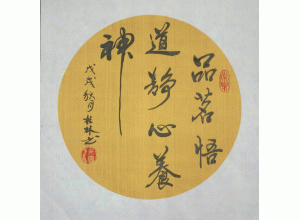 品茗悟
道静心養
神
戊戌秋月桂林书